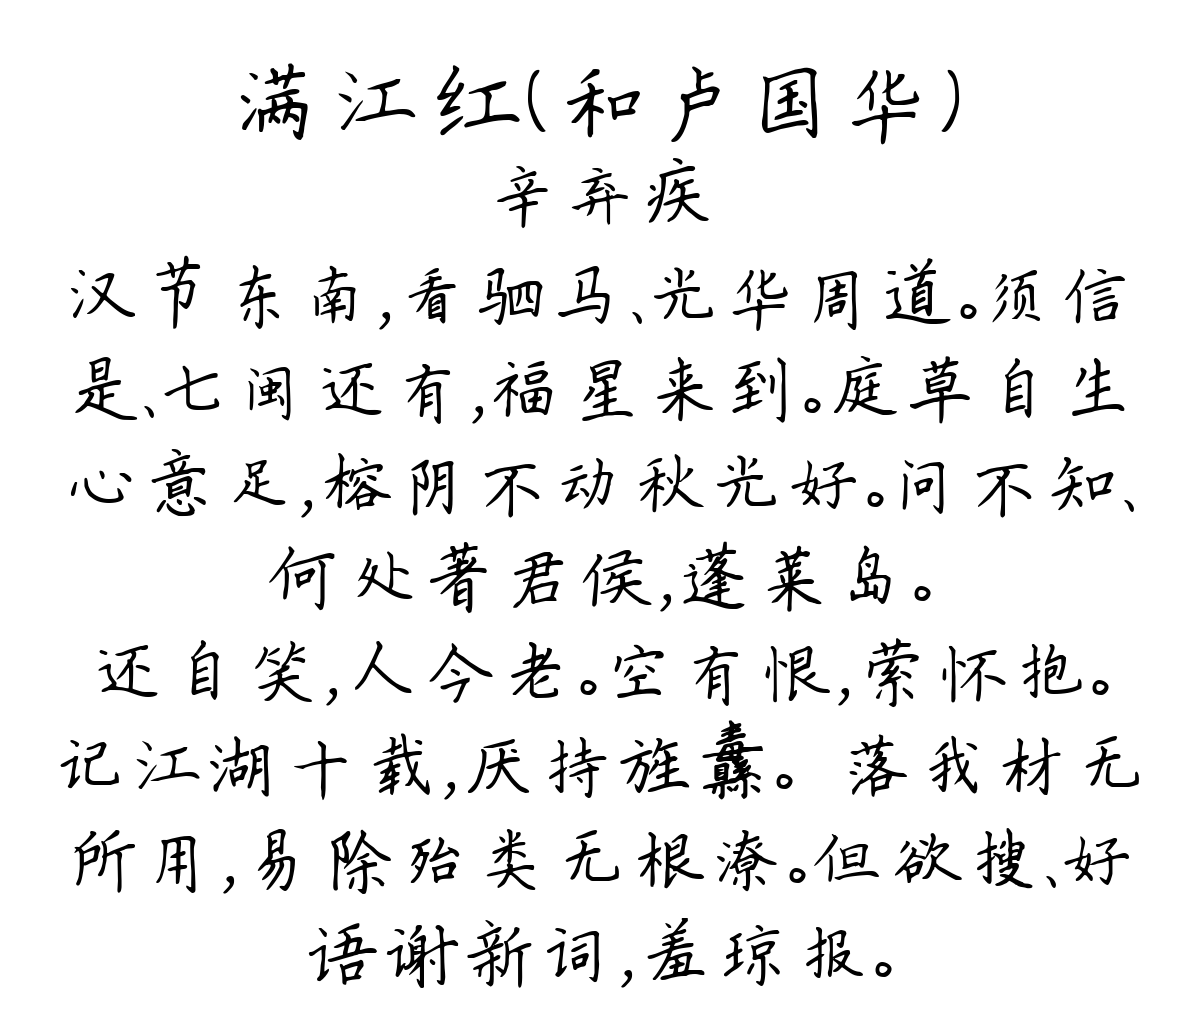 满江红(和卢国华)
辛弃疾
汉节东南,看驷马、光华周道。须信
是、七闽还有,福星来到。庭草自生
心意足,榕阴不动秋光好。问不知、
何处著君侯,蓬莱岛。
还自笑,人今老。空有恨,萦怀抱。
记江湖十载,厌持旌纛。 落我材无
所用,易除殆类无根潦。但欲搜、好
语谢新词,羞琼报。